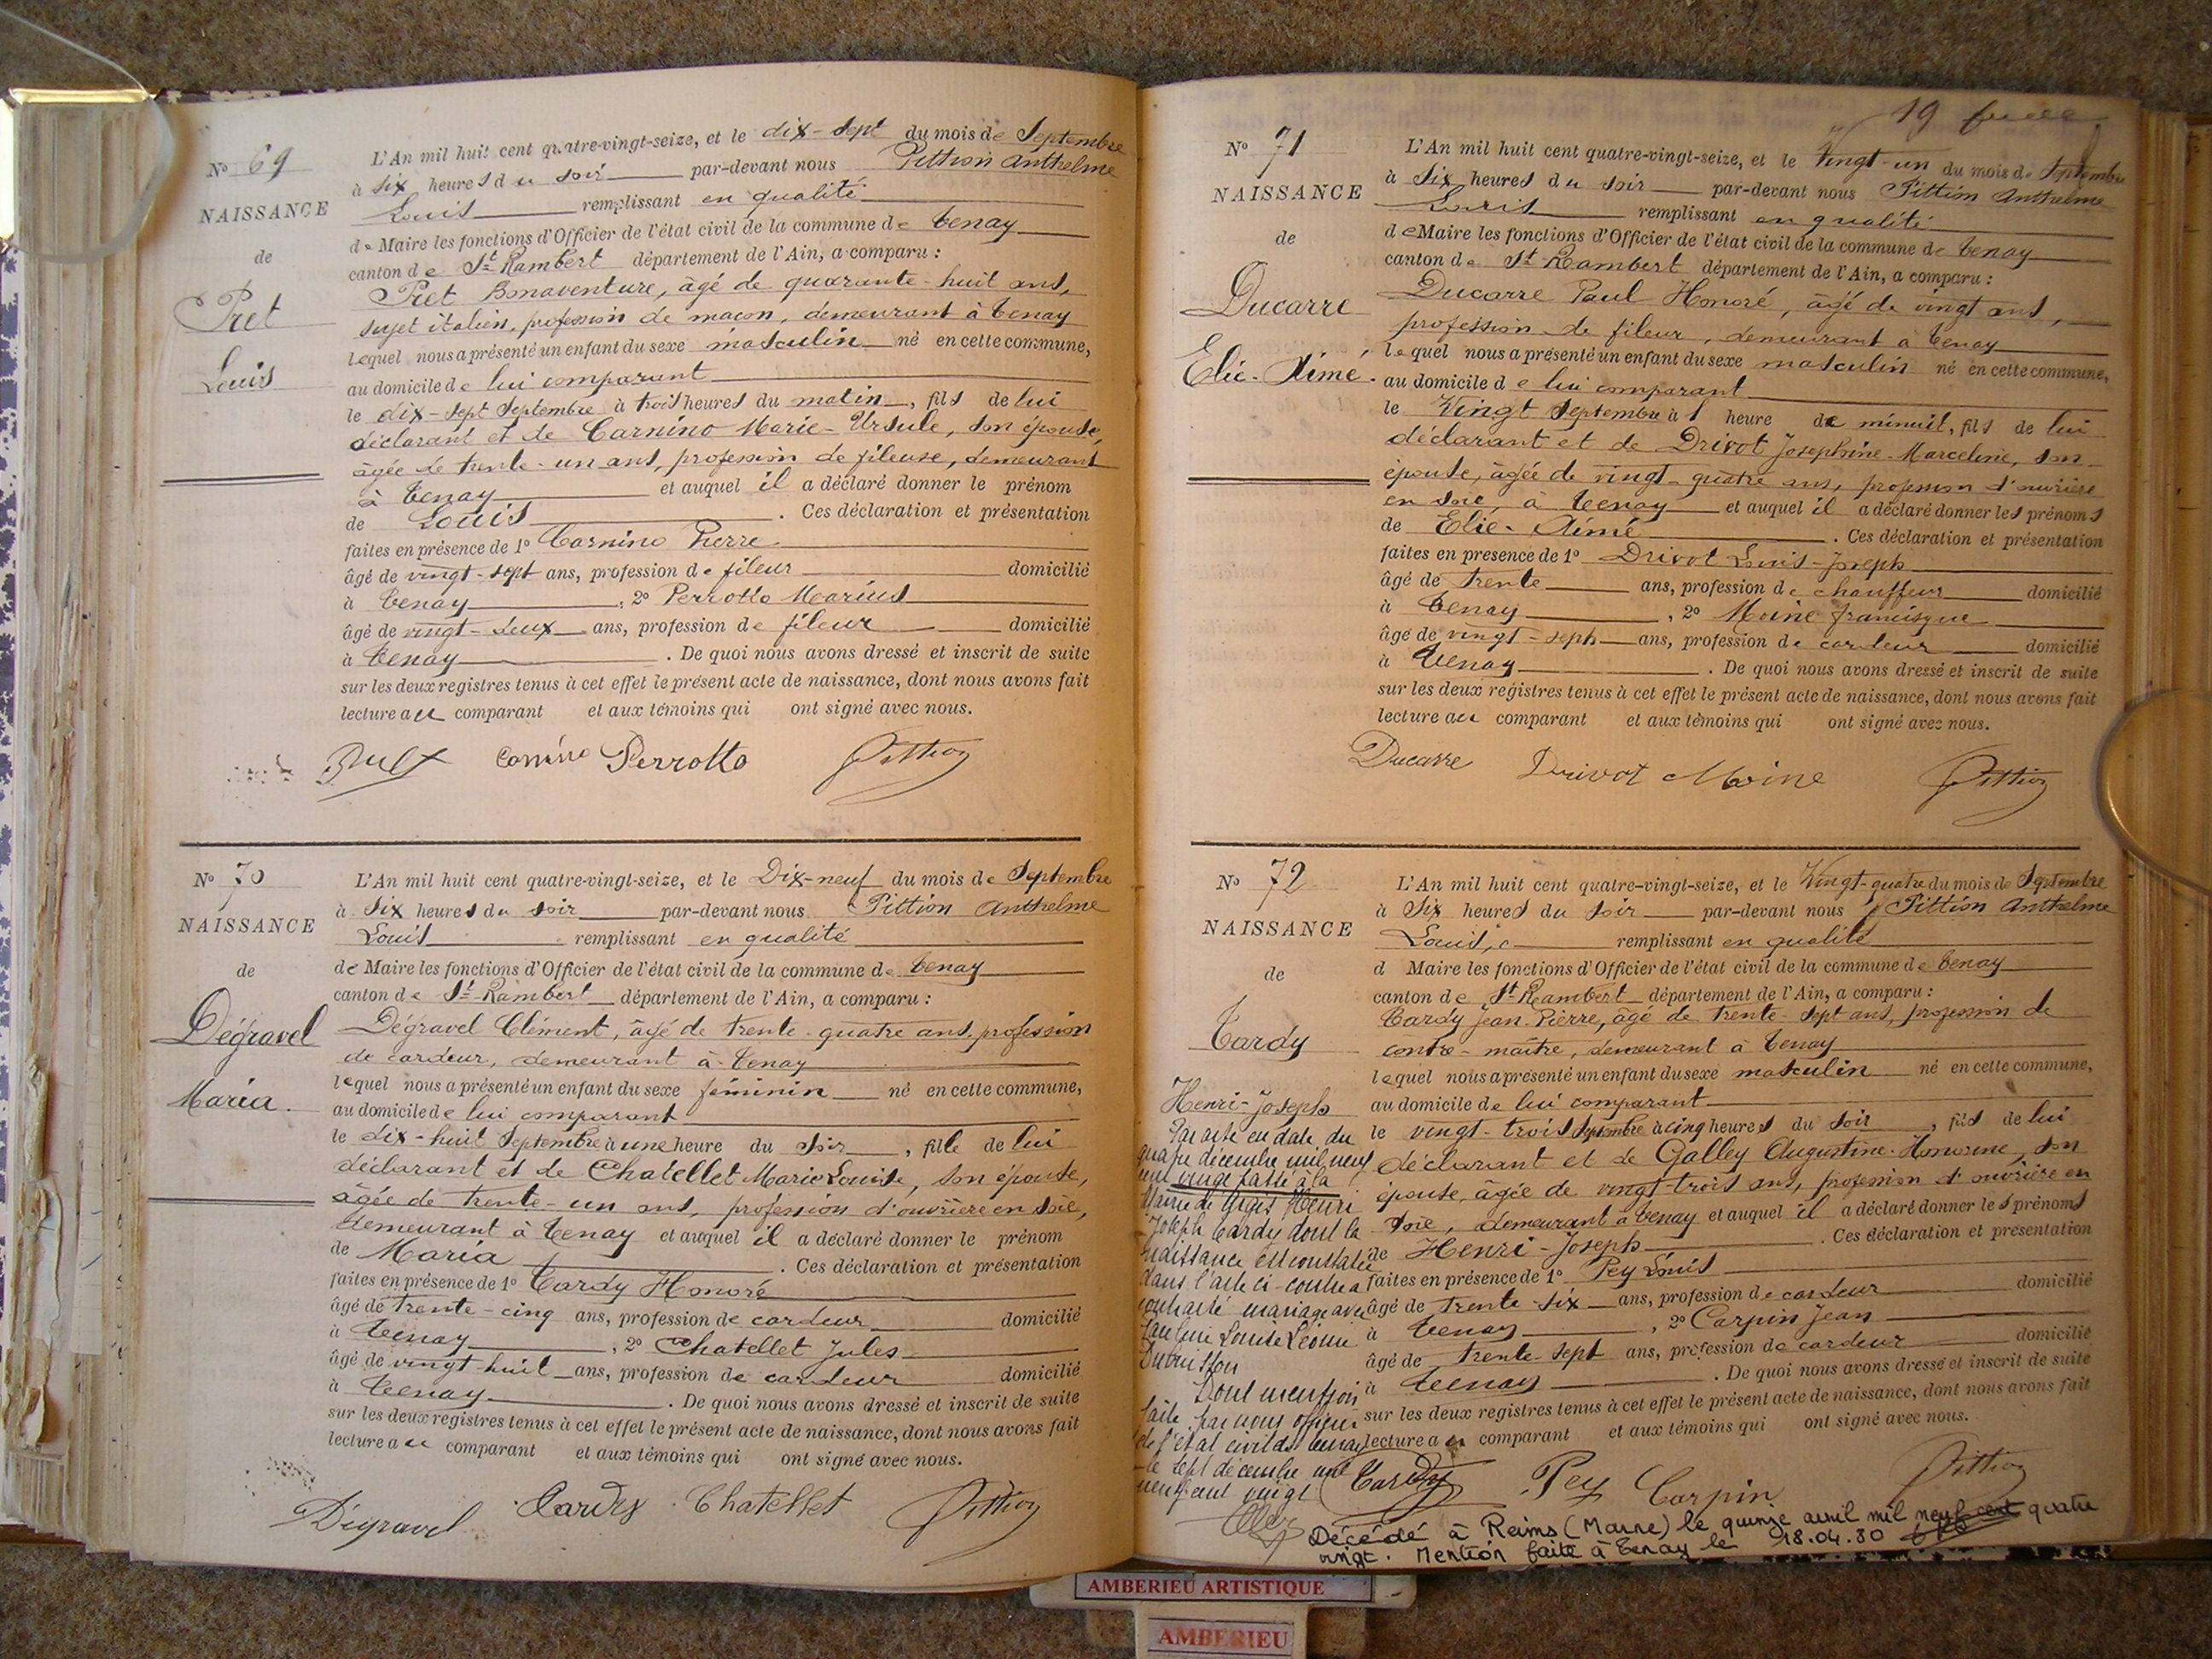 Nº 69
NAISSANCE
de
Pret
Louis
L'An mil huit cent quatre-vingt-seize, et le dix-sept du mois de Septembre
à six heures du soir par-devant nous Pittion Anthelme
Louis remplissant en qualité
de Maire les fonctions d'Officier de l'état civil de la commune de Tenay
canton de St Rambert département de l'Ain, a comparu :
Pret Bonaventure, âgé de quarante-huit ans,
sujet italien, profession de maçon, demeurant à Tenay
lequel nous a présenté un enfant du sexe masculin né en cette commune,
au domicile de lui comparant
le dix-sept Septembre à trois heures du matin, fils de lui
déclarant et de Carnino Marie-Ursule, son épouse,
âgée de trente-un ans, profession de fileuse, demeurant
à Tenay et auquel il a déclaré donner le prénom
de Louis . Ces déclaration et présentation
faites en présence de 1º Carnino Pierre
âgé de vingt-sept ans, profession de fileur domicilié
à Tenay , 2º Perrotto Marius
âgé de vingt-deux ans, profession de fileur domicilié
à Tenay . De quoi nous avons dressé et inscrit de suite
sur les deux registres tenus à cet effet le présent acte de naissance, dont nous avons fait
lecture au comparant et aux témoins qui ont signé avec nous.
Perrotto Pittion
Nº 70
NAISSANCE
de
Dégravel
Maria.
L'An mil huit cent quatre-vingt-seize, et le Dix-neuf du mois de Septembre
à Six heures du soir par-devant nous Pittion Anthelme
Louis remplissant en qualité
de Maire les fonctions d'Officier de l'état civil de la commune de Tenay
canton de St-Rambert département de l'Ain, a comparu :
Dégravel Clément, âgé de trente-quatre ans, profession
de cardeur, demeurant à Tenay
lequel nous a présenté un enfant du sexe féminin né en cette commune,
au domicile de lui comparant
le dix-huit Septembre à une heure du soir, fille de lui
déclarant et de Chatellet Marie Louise, son épouse,
âgée de trente-un ans, profession d'ouvrière en soie,
demeurant à Tenay et auquel il a déclaré donner le prénom
de Maria . Ces déclaration et présentation
faites en présence de 1º Tardy Honoré
âgé de trente-cinq ans, profession de cardeur domicilié
à Tenay , 2º Chatellet Jules
âgé de vingt-huit ans, profession de cardeur domicilié
à Tenay . De quoi nous avons dressé et inscrit de suite
sur les deux registres tenus à cet effet le présent acte de naissance, dont nous avons fait
lecture au comparant et aux témoins qui ont signé avec nous.
Dégravel Tardy Chatellet Pittion
19
Nº 71
NAISSANCE
de
Ducarre
Elie-Aimé.
L'An mil huit cent quatre-vingt-seize, et le Vingt-un du mois de Septembre
à Six heures du soir par-devant nous Pittion Anthelme
Louis remplissant en qualité
de Maire les fonctions d'Officier de l'état civil de la commune de Tenay
canton de St-Rambert département de l'Ain, a comparu :
Ducarre Paul Honoré, âgé de vingt ans,
profession de fileur, demeurant à Tenay
lequel nous a présenté un enfant du sexe masculin né en cette commune,
au domicile de lui comparant
le Vingt Septembre à 1 heure de minuit, fils de lui
déclarant et de Drivot Josephine-Marceline, son
épouse, âgée de vingt-quatre ans, profession d'ouvrière
en soie, à Tenay et auquel il a déclaré donner les prénoms
de Elie-Aimé . Ces déclaration et présentation
faites en présence de 1º Drivot Louis-Joseph
âgé de trente ans, profession de chauffeur domicilié
à Tenay , 2º Moine francisque
âgé de vingt-seph ans, profession de cardeur domicilié
à Tenay . De quoi nous avons dressé et inscrit de suite
sur les deux registres tenus à cet effet le présent acte de naissance, dont nous avons fait
lecture au comparant et aux témoins qui ont signé avec nous.
Ducarre Drivot Moine Pittion
Nº 72
NAISSANCE
de
Tardy
Henri-Joseph
L'An mil huit cent quatre-vingt-seize, et le Vingt-quatre du mois de Septembre
à Six heures du soir par-devant nous Pittion Anthelme
Louis, remplissant en qualité
d Maire les fonctions d'Officier de l'état civil de la commune de Tenay
canton de St-Rambert département de l'Ain, a comparu :
Tardy Jean-Pierre, âgé de trente-sept ans, profession de
contre-maître, demeurant à Tenay
lequel nous a présenté un enfant du sexe masculin né en cette commune,
au domicile de lui comparant
le vingt-trois Septembre à cinq heures du soir, fils de lui
déclarant et de Galley Augustine-Honorine, son
épouse, âgée de vingt-trois ans, profession d'ouvrière en
soie, demeurant à Tenay et auquel il a déclaré donner les prénoms
de Henri-Joseph . Ces déclaration et présentation
faites en présence de 1º Pey Louis
âgé de trente-six ans, profession de cardeur domicilié
à Tenay , 2º Carpin Jean
âgé de trente-sept ans, profession de cardeur domicilié
à Tenay . De quoi nous avons dressé et inscrit de suite
sur les deux registres tenus à cet effet le présent acte de naissance, dont nous avons fait
lecture au comparant et aux témoins qui ont signé avec nous.
Tardy Pey Carpin Pittion
Par acte en date du
quatre décembre mil neuf
cent vingt passé à la
Mairie de Henri
Joseph Tardy dont la
naissance est constatée
dans l'acte ci-contre a
contracté mariage avec
Louise Léonie
Dubuisson
Dont mention
faite par nous officier
de l'état civil de Tenay
le sept décembre mil
neuf cent vingt
Décédé à Reims (Marne) le quinze avril mil neuf cent quatre
vingt. Mention faite à Tenay le 18.04.80
AMBERIEU ARTISTIQUE
AMBERIEU